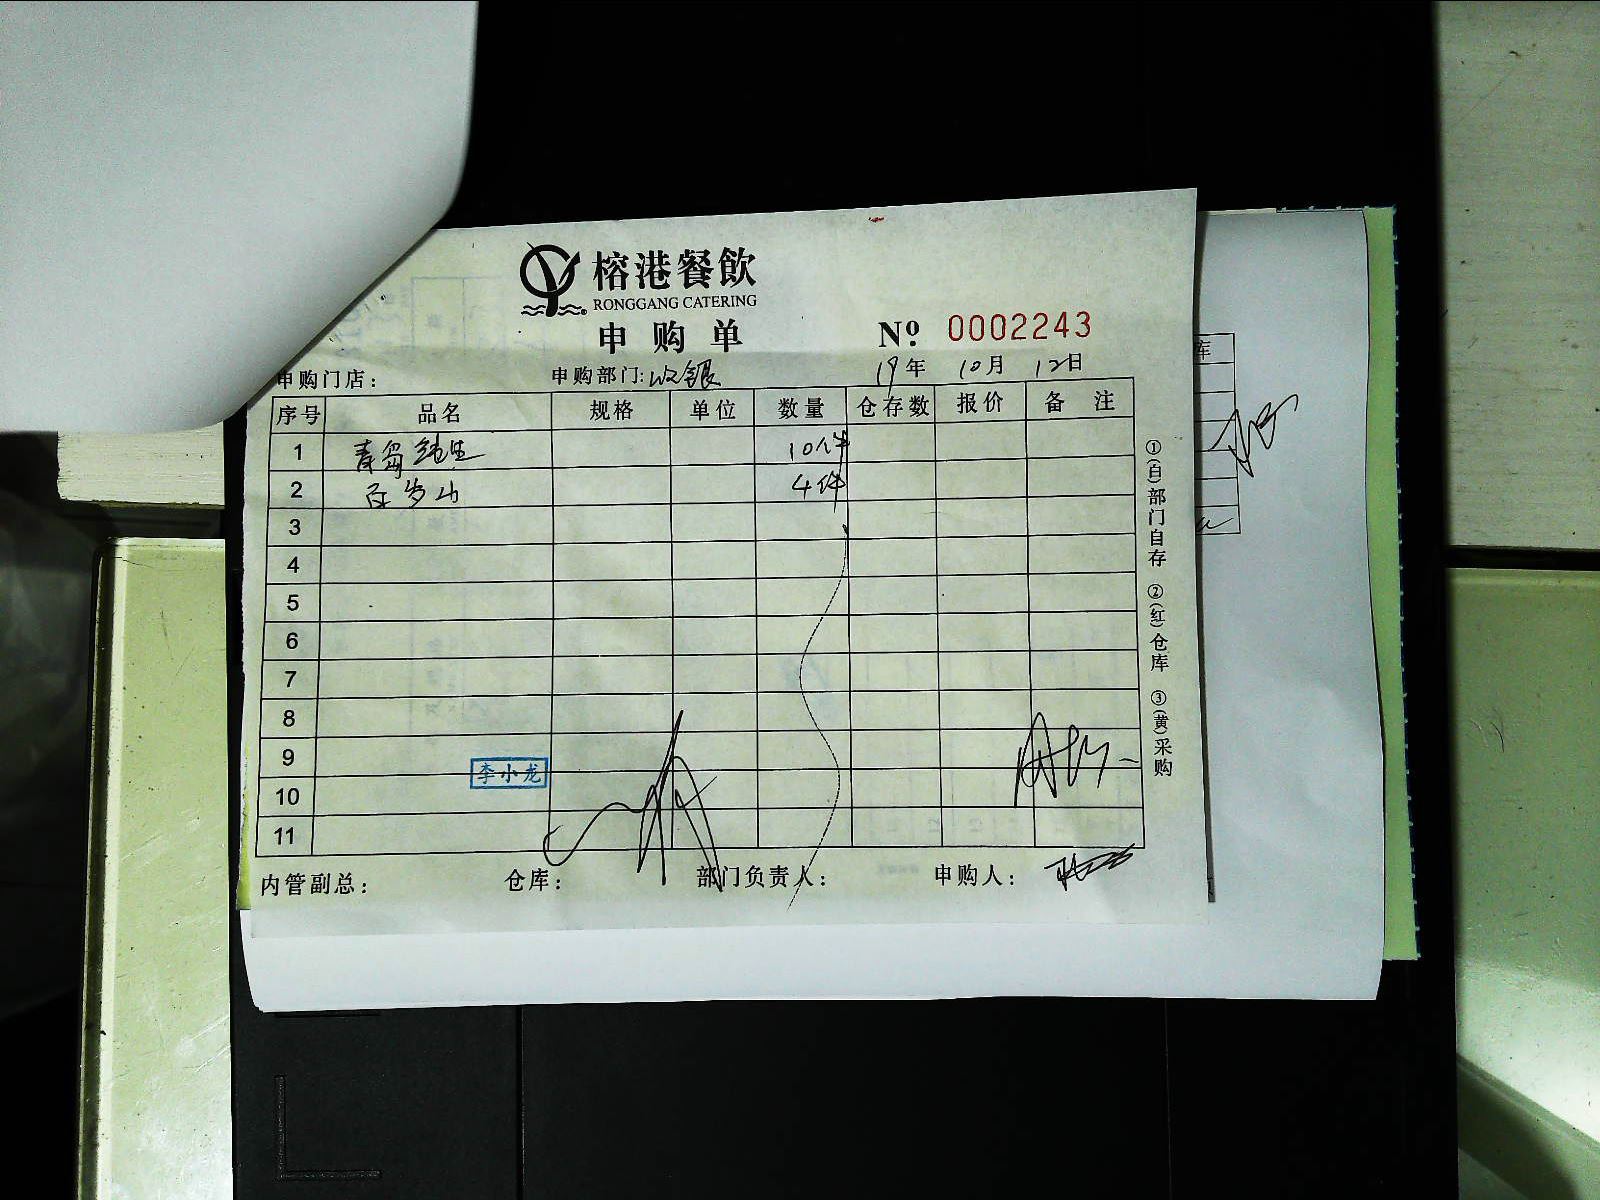 榕港餐飲
RONGGANG CATERING
申购单
№: 0002243
申购门店: 申购部门: 收银 19年 10月 12日
序号 品名 规格 单位 数量 仓存数 报价 备注
1 青岛纯生 10件
2 百岁山 4件
3
4
5
6
7
8
9
10
11
李小龙
内管副总: 仓库: 部门负责人: 申购人:
①(白)部门自存 ②(红)仓库 ③(黄)采购
库